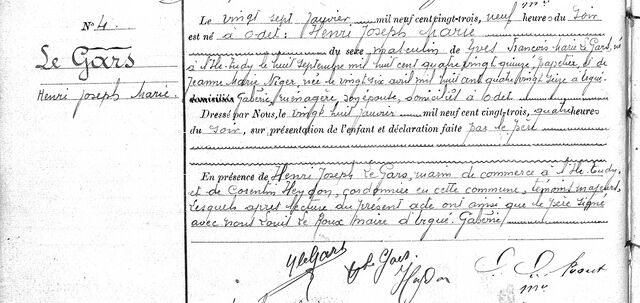 N° 4.
Le Gars
Henri Joseph Marie.
Le vingt sept janvier, mil neuf cent vingt-trois, neuf heures du soir
est né à Odet : Henri Joseph Marie
du sexe masculin de Yves François Marie Le Gars, né
à l'Ile-Tudy le huit Septembre mil huit cent quatre vingt quinze, papetier, et de
Jeanne Marie Niger, née le vingt six avril mil huit cent quatre vingt seize à Ergué-
Gabéric, ménagère, son épouse, domiciliés à Odet.
Dressé par Nous, le vingt huit janvier mil neuf cent vingt-trois, quatre heures
du soir, sur présentation de l'enfant et déclaration faite par le père
En présence de Henri Joseph Le Gars, marin de commerce à l'Ile-Tudy,
et de Corentin Heydon, cordonnier en cette commune, témoins majeurs,
lesquels après lecture du présent acte ont ainsi que le père signé
avec nous Louis Le Roux Maire d'Ergué-Gabéric.
Y le Gars
Le Gars
Heydon